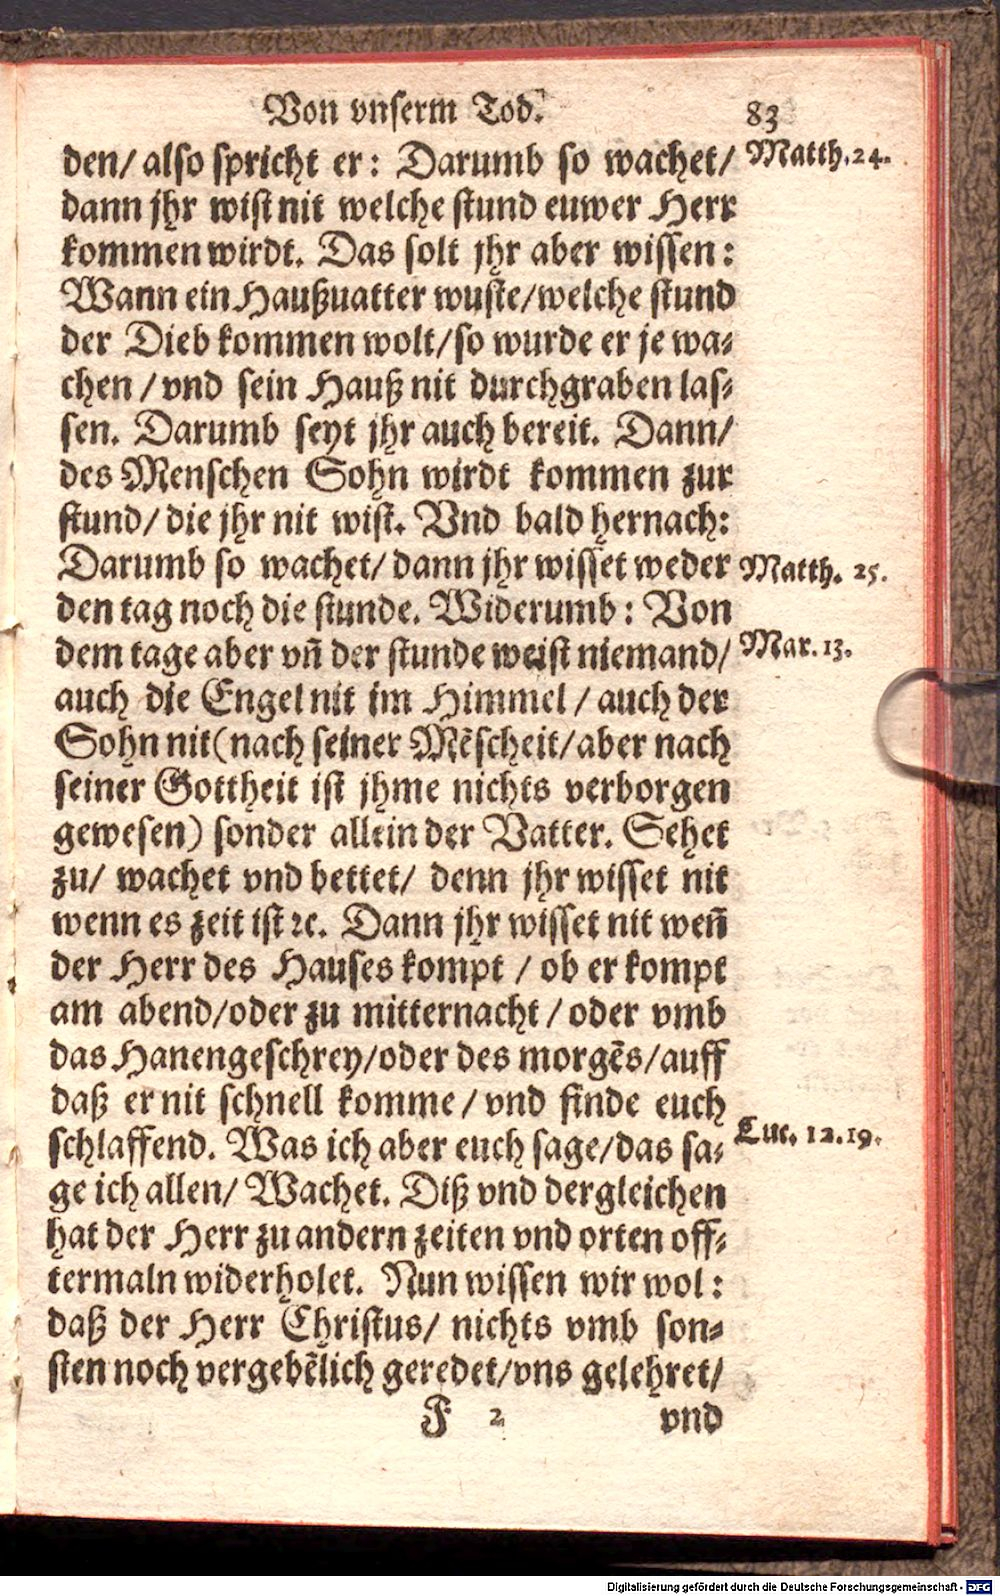 Von vnserm Tod. 83
den/ also spricht er: Darumb so wachet/ Matth. 24.
dann jhr wist nit welche stund euwer Herr
kommen wirdt. Das solt jhr aber wissen:
Wann ein Haußuatter wuste/welche stund
der Dieb kommen wolt/so wurde er je wa-
chen / vnd sein Hauß nit durchgraben las-
sen. Darumb seyt jhr auch bereit. Dann/
des Menschen Sohn wirdt kommen zur
stund/ die jhr nit wist. Vnd bald hernach:
Darumb so wachet/ dann jhr wisset weder Matth. 25.
den tag noch die stunde. Widerumb: Von
dem tage aber vñ der stunde weist niemand/ Mar. 13.
auch die Engel nit im Himmel / auch der
Sohn nit (nach seiner Mẽscheit/aber nach
seiner Gottheit ist jhme nichts verborgen
gewesen) sonder allein der Vatter. Sehet
zu/ wachet vnd bettet/ denn jhr wisset nit
wenn es zeit ist ꝛc. Dann jhr wisset nit weñ
der Herr des Hauses kompt / ob er kompt
am abend/oder zu mitternacht / oder vmb
das Hanengeschrey/oder des morgẽs/auff
daß er nit schnell komme / vnd finde euch
schlaffend. Was ich aber euch sage/das sa- Luc. 12.19.
ge ich allen/ Wachet. Diß vnd dergleichen
hat der Herr zu andern zeiten vnd orten off-
termaln widerholet. Nun wissen wir wol:
daß der Herr Christus/ nichts vmb son-
sten noch vergebẽlich geredet/vns gelehret/
F 2 vnd
Digitalisierung gefördert durch die Deutsche Forschungsgemeinschaft - DFG